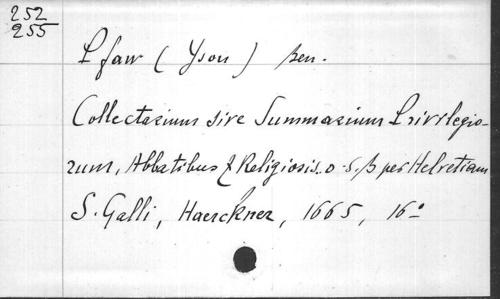 252
255
Pfaw (Yson) Ben.
Collectarium sive Summarium Privilegio-
rum, Abbatibus & Religiosis. O. S. B per Helvetiam
S. Galli, Haerckner, 1665, 16°